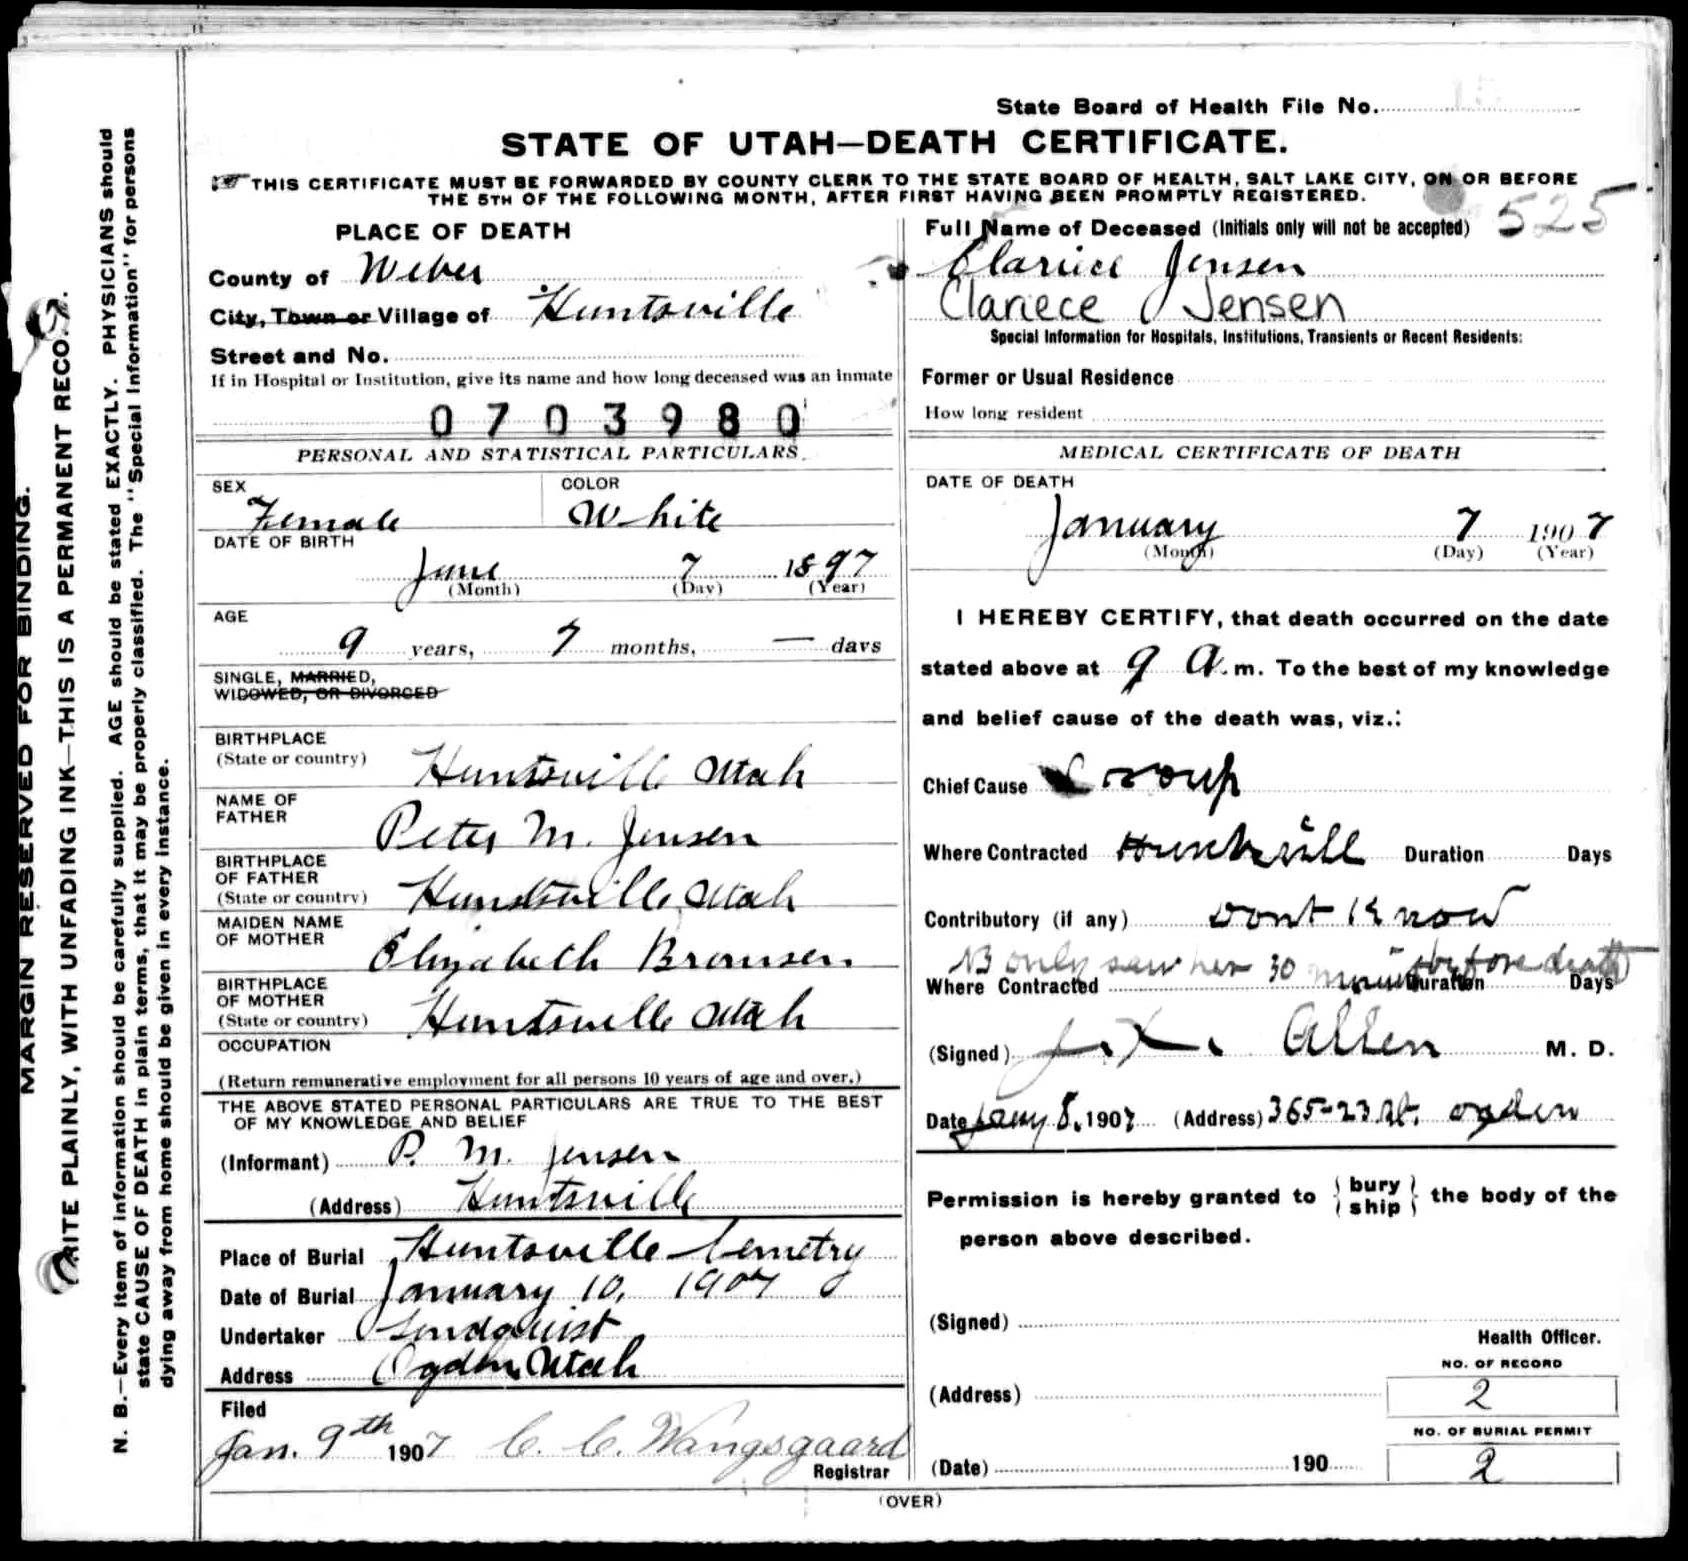 State Board of Health File No.
STATE OF UTAH—DEATH CERTIFICATE.
THIS CERTIFICATE MUST BE FORWARDED BY COUNTY CLERK TO THE STATE BOARD OF HEALTH, SALT LAKE CITY, ON OR BEFORE
THE 5TH OF THE FOLLOWING MONTH, AFTER FIRST HAVING BEEN PROMPTLY REGISTERED.
525
PLACE OF DEATH
County of Weber
City, Town or Village of Huntsville
Street and No.
If in Hospital or Institution, give its name and how long deceased was an inmate
0703980
Full Name of Deceased (Initials only will not be accepted)
Clariece Jensen
Clariece Jensen
Special Information for Hospitals, Institutions, Transients or Recent Residents:
Former or Usual Residence
How long resident
PERSONAL AND STATISTICAL PARTICULARS.
SEX COLOR
Female White
DATE OF BIRTH
June 7 1897
(Month) (Day) (Year)
AGE
9 years, 7 months, — days
SINGLE, MARRIED,
WIDOWED, OR DIVORCED
BIRTHPLACE
(State or country) Huntsville Utah
NAME OF
FATHER Peter M. Jensen
BIRTHPLACE
OF FATHER
(State or country) Huntsville Utah
MAIDEN NAME
OF MOTHER Elizabeth Bronsen
BIRTHPLACE
OF MOTHER
(State or country) Huntsville Utah
OCCUPATION
(Return remunerative employment for all persons 10 years of age and over.)
THE ABOVE STATED PERSONAL PARTICULARS ARE TRUE TO THE BEST
OF MY KNOWLEDGE AND BELIEF
(Informant) P. M. Jensen
(Address) Huntsville
Place of Burial Huntsville Cemetry
Date of Burial January 10, 1907
Undertaker Lindquist
Address Ogden Utah
Filed
Jan. 9th 1907 C. C. Wangsgaard
Registrar
MEDICAL CERTIFICATE OF DEATH
DATE OF DEATH
January 7 1907
(Month) (Day) (Year)
I HEREBY CERTIFY, that death occurred on the date
stated above at 9 A.m. To the best of my knowledge
and belief cause of the death was, viz.:
Chief Cause Croup
Where Contracted Huntsvill Duration Days
Contributory (if any) Dont Know
NB only saw her 30 minutes before death
Where Contracted Duration Days
(Signed) Allen M. D.
Date Jany 8, 1907 (Address) 365-23 St. Ogden
Permission is hereby granted to {bury ship} the body of the
person above described.
(Signed)
Health Officer.
NO. OF RECORD
(Address) 2
NO. OF BURIAL PERMIT
(Date) 190 2
(OVER)
MARGIN RESERVED FOR BINDING.
RITE PLAINLY, WITH UNFADING INK—THIS IS A PERMANENT RECO
N. B.—Every item of information should be carefully supplied. AGE should be stated EXACTLY. PHYSICIANS should
state CAUSE OF DEATH in plain terms, that it may be properly classified. The "Special Information" for persons
dying away from home should be given in every instance.